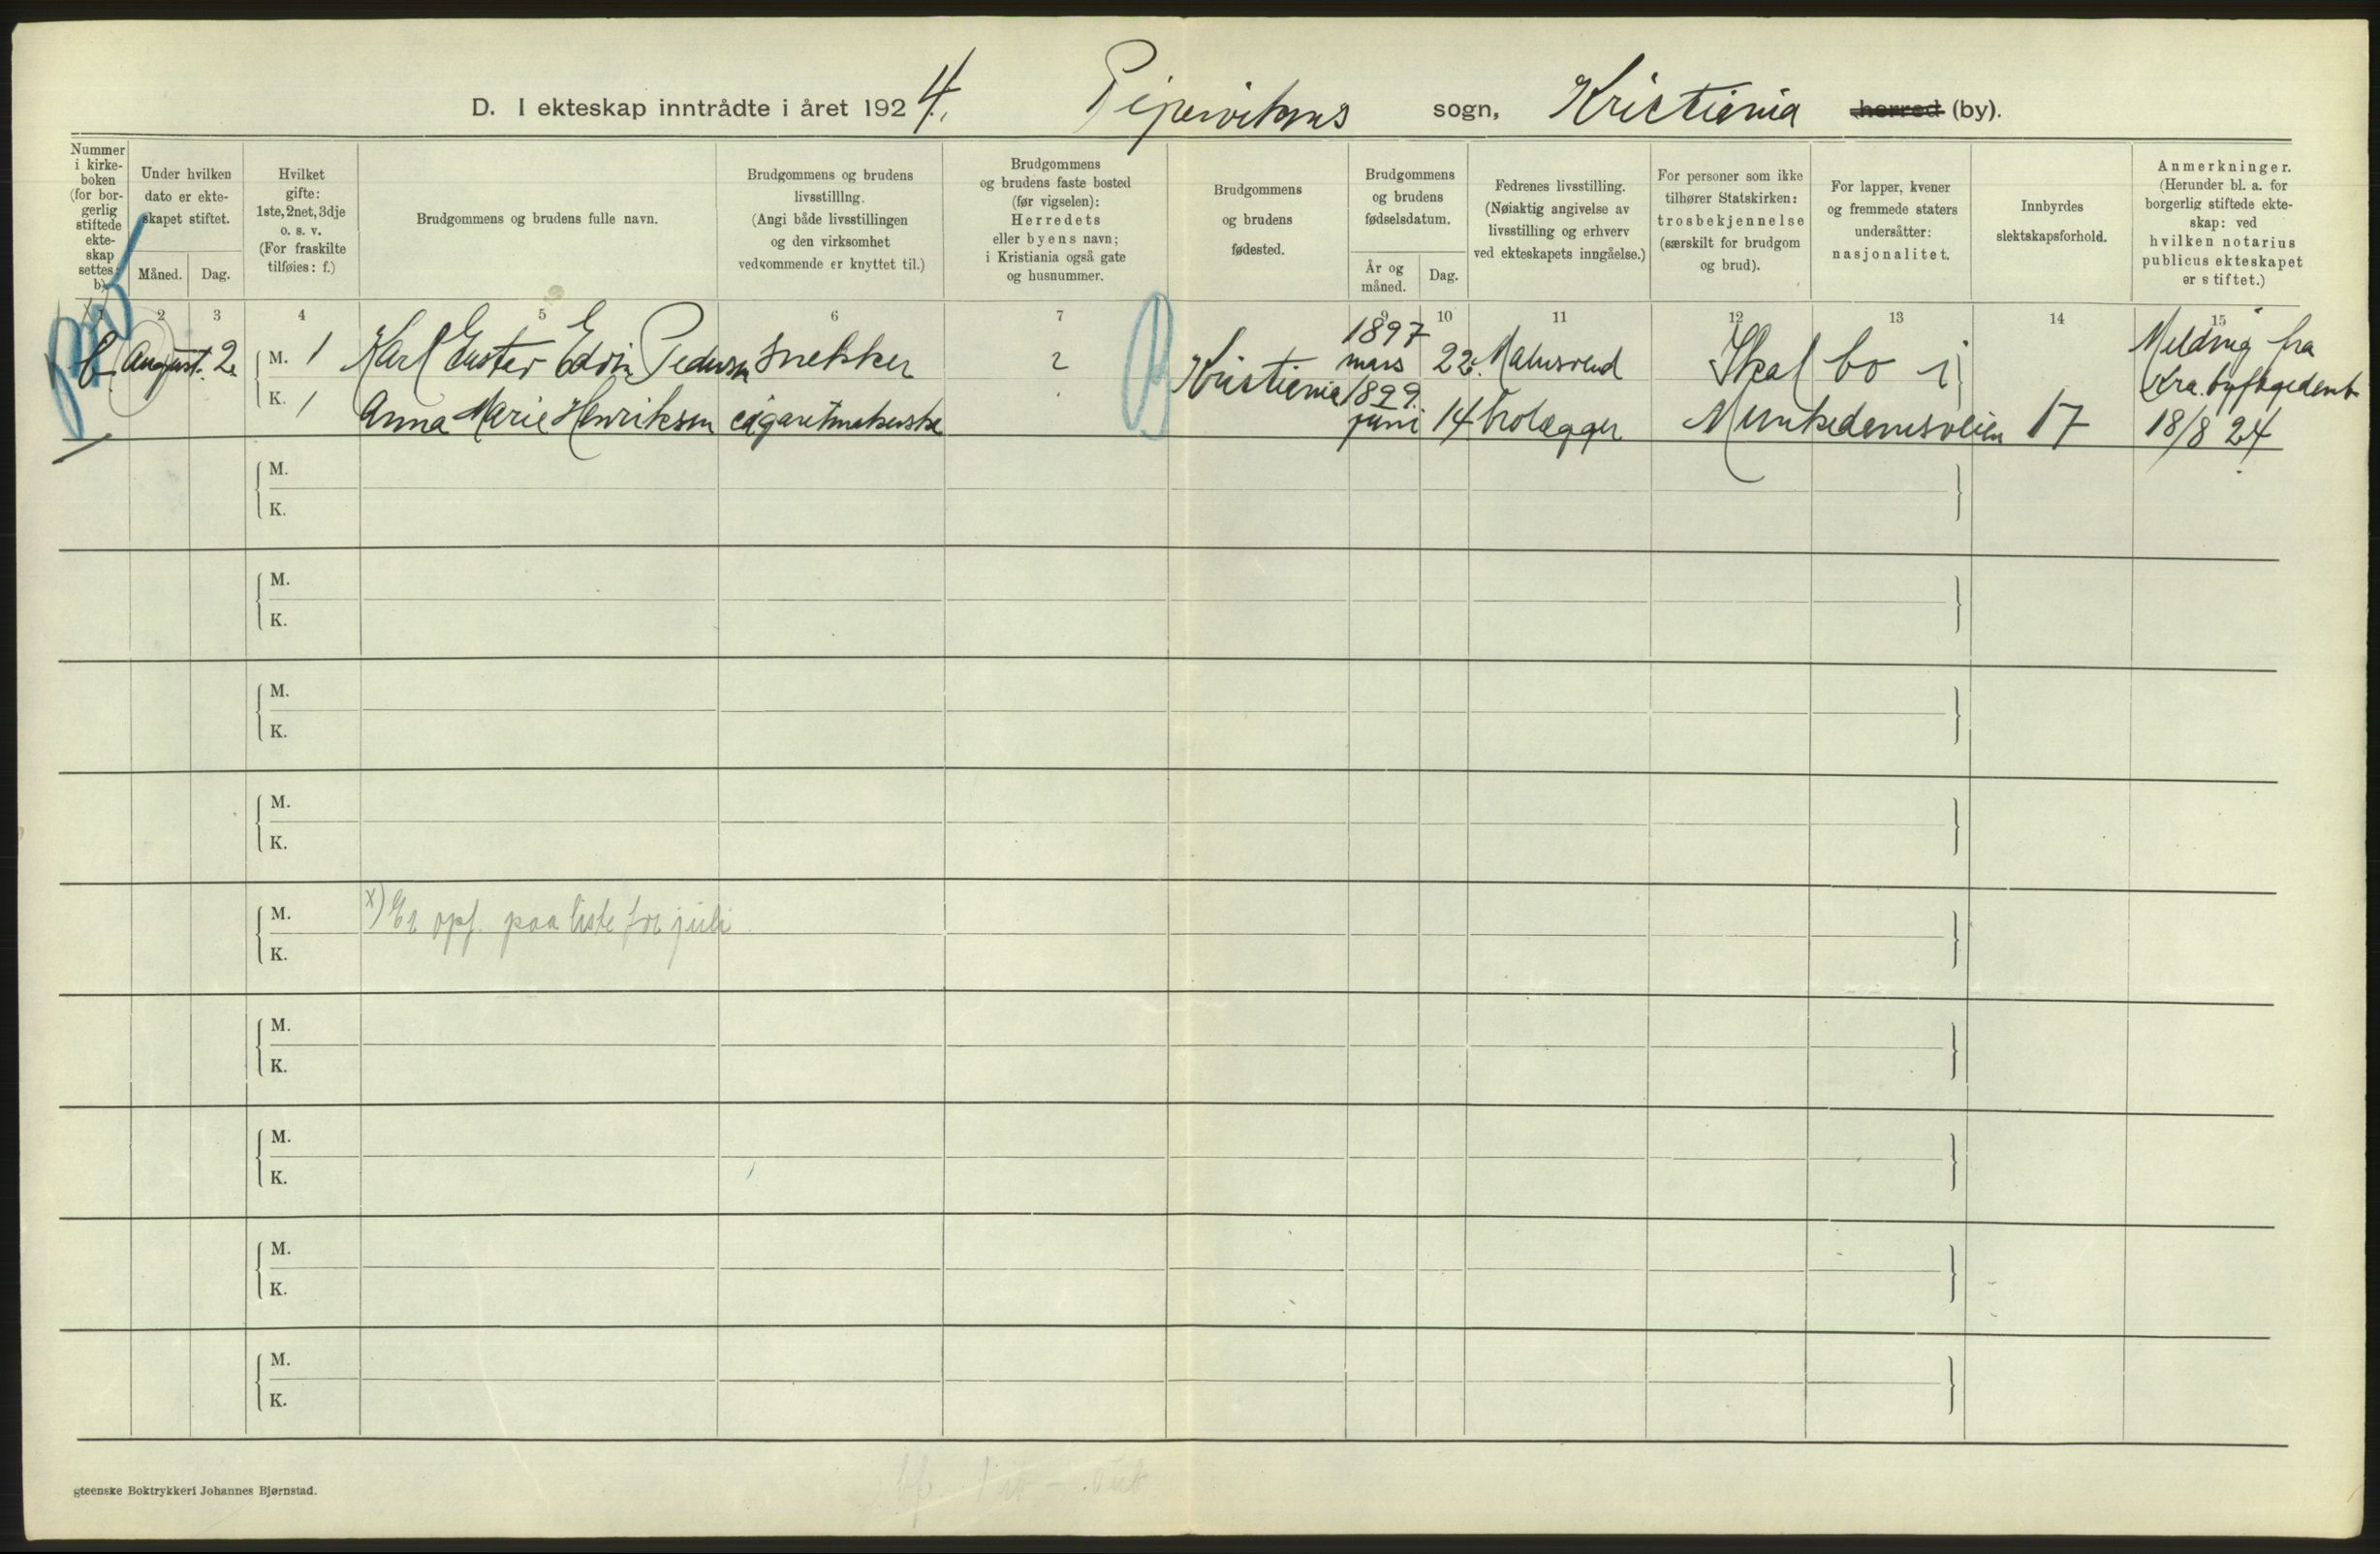 D. I ekteskap inntrådte i året 1924. Pipervikens sogn, Kristiania herred (by).
Nummer i kirke-boken (for bor-gerlig stiftede ekte-skap settes: b).
Under hvilken dato er ekte-skapet stiftet.
Måned. Dag.
Hvilket gifte: 1ste, 2net, 3dje o. s. v. (For fraskilte tilføies: f.)
Brudgommens og brudens fulle navn.
Brudgommens og brudens livsstilllng. (Angi både livsstillingen og den virksomhet vedkommende er knyttet til.)
Brudgommens og brudens faste bosted (før vigselen): Herredets eller byens navn; i Kristiania også gate og husnummer.
Brudgommens og brudens fødested.
Brudgommens og brudens fødselsdatum.
År og måned. Dag.
Fedrenes livsstilling. (Nøiaktig angivelse av livsstilling og erhverv ved ekteskapets inngåelse.)
For personer som ikke tilhører Statskirken: trosbekjennelse (særskilt for brudgom og brud).
For lapper, kvener og fremmede staters undersåtter: nasjonalitet.
Innbyrdes slektskapsforhold.
Anmerkninger. (Herunder bl. a. for borgerlig stiftede ekte-skap: ved hvilken notarius publicus ekteskapet er stiftet.)
1 2 3 4 5 6 7 9 10 11 12 13 14 15
b. August. 2. M. 1 Karl Gustav Edvin Pedersen snekker ? Kristiania 1897 mars 22. Malersvend Skal bo i Melding fra Kra. byfogedemb.
K. 1 Anna Marie Henriksen cigaretmakerske 1899. juni 14 Brolægger Munkedamsveien 17 18/8 24
M.
K.
M.
K.
M.
K.
M.
K.
M. x) Er opf. paa liste for juli
K.
M.
K.
M.
K.
M.
K.
M.
K.
gteenske Boktrykkeri Johannes Bjørnstad.